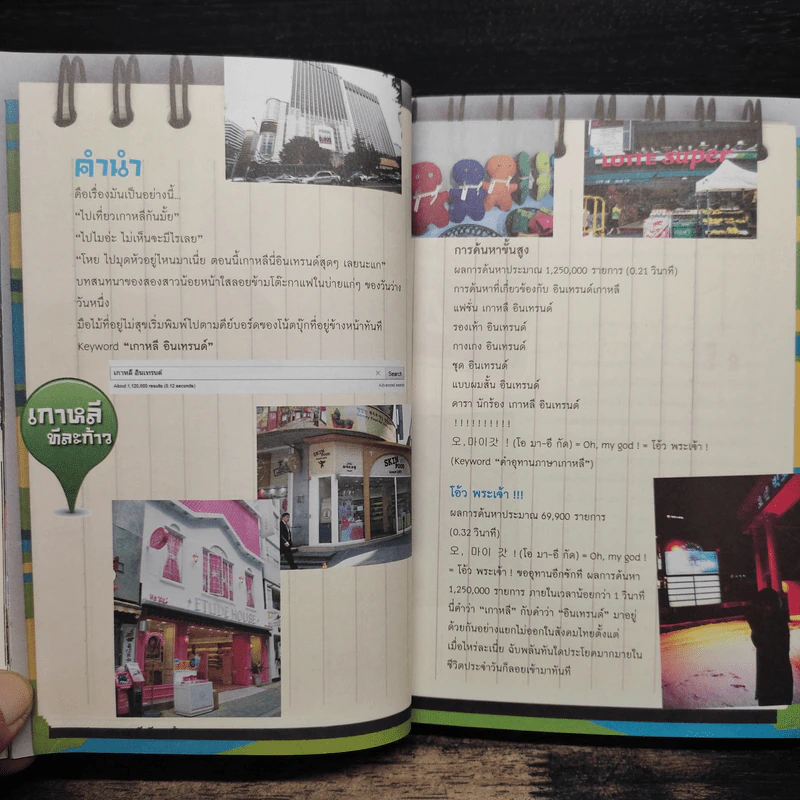 คำนำ
คือเรื่องมันเป็นอย่างนี้...
"ไปเที่ยวเกาหลีกันมั้ย"
"ไปไมอ่ะ ไม่เห็นจะมีไรเลย"
"โหย ไปมุดหัวอยู่ไหนมาเนี่ย ตอนนี้เกาหลีนี่อินเทรนด์สุดๆ เลยนะแก"
บทสนทนาของสองสาวน้อยหน้าใสลอยข้ามโต๊ะกาแฟในบ่ายแก่ๆ ของวันว่าง
วันหนึ่ง
มือไม้ที่อยู่ไม่สุขเริ่มพิมพ์ไปตามคีย์บอร์ดของโน้ตบุ๊กที่อยู่ข้างหน้าทันที
Keyword "เกาหลี อินเทรนด์"
เกาหลี อินเทรนด์ × Search
About 1,120,000 results (0.12 seconds) Advanced search
เกาหลี
ทีละก้าว
SKIN FOOD
SKIN FOOD
ETUDE HOUSE
LOTTE super
การค้นหาขั้นสูง
ผลการค้นหาประมาณ 1,250,000 รายการ (0.21 วินาที)
การค้นหาที่เกี่ยวข้องกับ อินเทรนด์เกาหลี
แฟชั่น เกาหลี อินเทรนด์
รองเท้า อินเทรนด์
กางเกง อินเทรนด์
ชุด อินเทรนด์
แบบผมสั้น อินเทรนด์
ดารา นักร้อง เกาหลี อินเทรนด์
! ! ! ! ! ! ! ! ! !
오,마이갓 ! (โอ มา-อี กัด) = Oh, my god ! = โอ้ว พระเจ้า !
(Keyword "คำอุทานภาษาเกาหลี")
โอ้ว พระเจ้า !!!
ผลการค้นหาประมาณ 69,900 รายการ
(0.32 วินาที)
오, 마이 갓 ! (โอ มา-อี กัด) = Oh, my god !
= โอ้ว พระเจ้า ! ขออุทานอีกซักที ผลการค้นหา
1,250,000 รายการ ภายในเวลาน้อยกว่า 1 วินาที
นี่คำว่า "เกาหลี" กับคำว่า "อินเทรนด์" มาอยู่
ด้วยกันอย่างแยกไม่ออกในสังคมไทยตั้งแต่
เมื่อไหร่ละเนี่ย ฉับพลันทันใดประโยคมากมายใน
ชีวิตประจำวันก็ลอยเข้ามาทันที